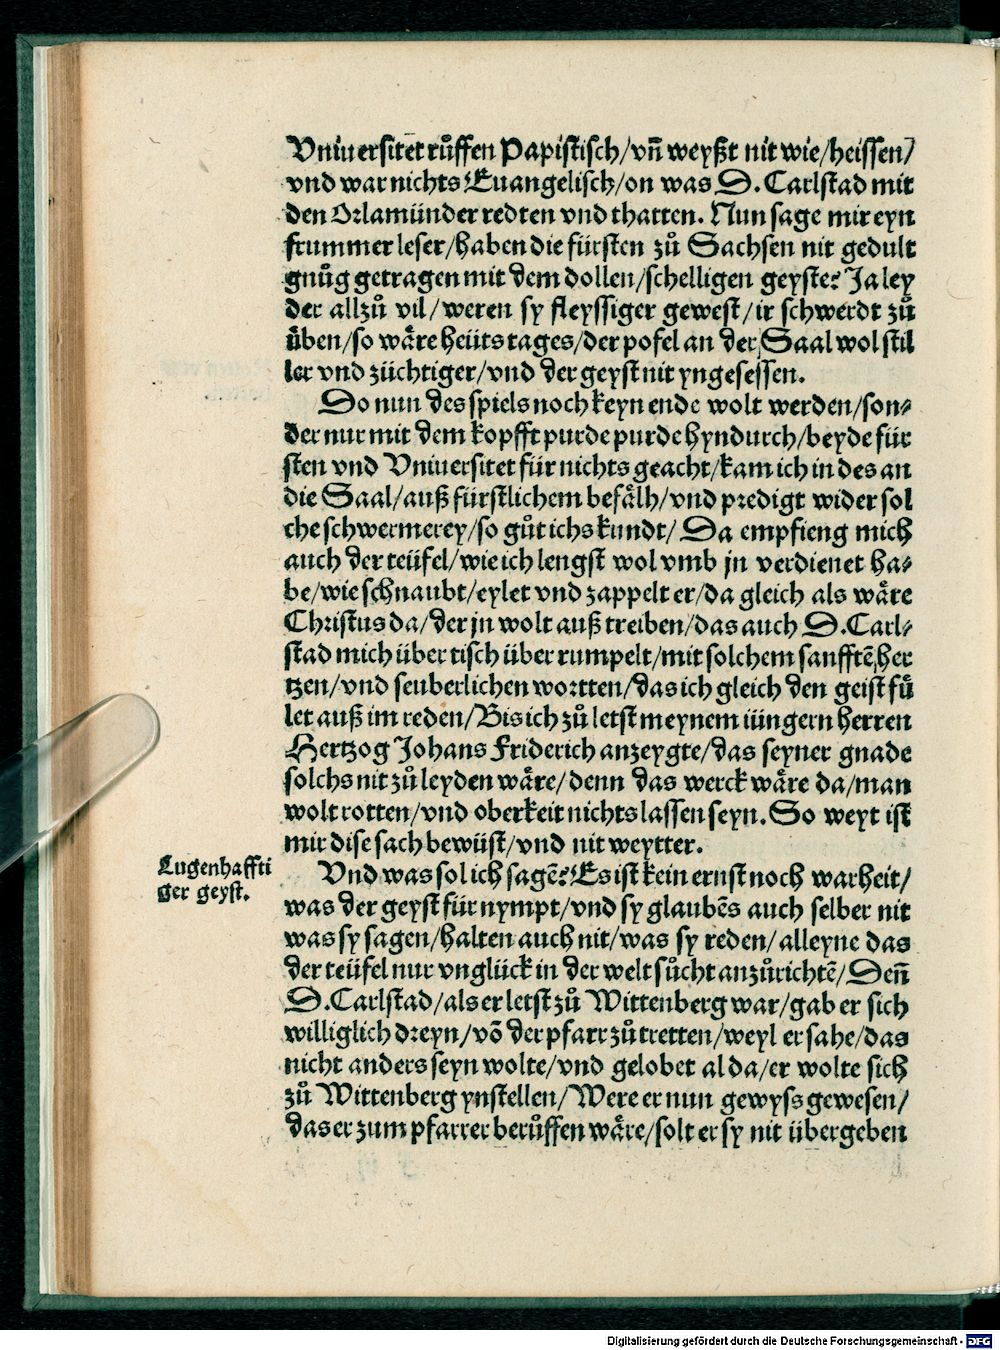 Vniuersitet růffen Papistisch/vñ weyßt nit wie/heissen/
vnd war nichts Euangelisch/on was D. Carlstad mit
den Orlamünder redten vnd thatten. Nun sage mir eyn
frummer leser/haben die fürsten zů Sachsen nit gedult
gnůg getragen mit dem dollen/schelligen geyste? Ja ley
der allzů vil/weren sy fleyssiger gewest/ir schwerdt zů
ůben/so wåre heüts tages/der pofel an der Saal wol stil
ler vnd züchtiger/vnd der geyst nit yngesessen.
Do nun des spiels noch keyn ende wolt werden/son⸗
der nur mit dem kopfft purde purde hyndurch/beyde für
sten vnd Vniuersitet für nichts geacht/kam ich in des an
die Saal/auß fürstlichem befålh/vnd predigt wider sol
che schwermerey/so gůt ichs kundt/ Da empfieng mich
auch der teüfel/wie ich lengst wol vmb jn verdienet ha⸗
be/wie schnaubt/eylet vnd zappelt er/da gleich als wåre
Christus da/der jn wolt auß treiben/das auch D.Carl⸗
stad mich über tisch über rumpelt/mit solchem sanfftẽ her
tzen/vnd seuberlichen wortten/das ich gleich den geist fů
let auß im reden/Bis ich zů letst meynem iüngern herren
Hertzog Johans Friderich anzeygte/das seyner gnade
solchs nit zů leyden wåre/denn das werck wåre da/man
wolt rotten/vnd oberkeit nichts lassen seyn. So weyt ist
mir dise sach bewüst/vnd nit weytter.
Lugenhaffti
ger geyst.
Vnd was sol ich sagẽ? Es ist kein ernst noch warheit/
was der geyst für nympt/vnd sy glaubẽs auch selber nit
was sy sagen/halten auch nit/was sy reden/alleyne das
der teüfel nur vnglück in der welt sůcht anzůrichtẽ/Deñ
D.Carlstad/als er letst zů Wittenberg war/gab er sich
williglich dreyn/võ der pfarr zů tretten/weyl er sahe/das
nicht anders seyn wolte/vnd gelobet al da/er wolte sich
zů Wittenberg ynstellen/Were er nun gewyss gewesen/
das er zum pfarrer berůffen wåre/solt er sy nit übergeben
Digitalisierung gefördert durch die Deutsche Forschungsgemeinschaft - DFG